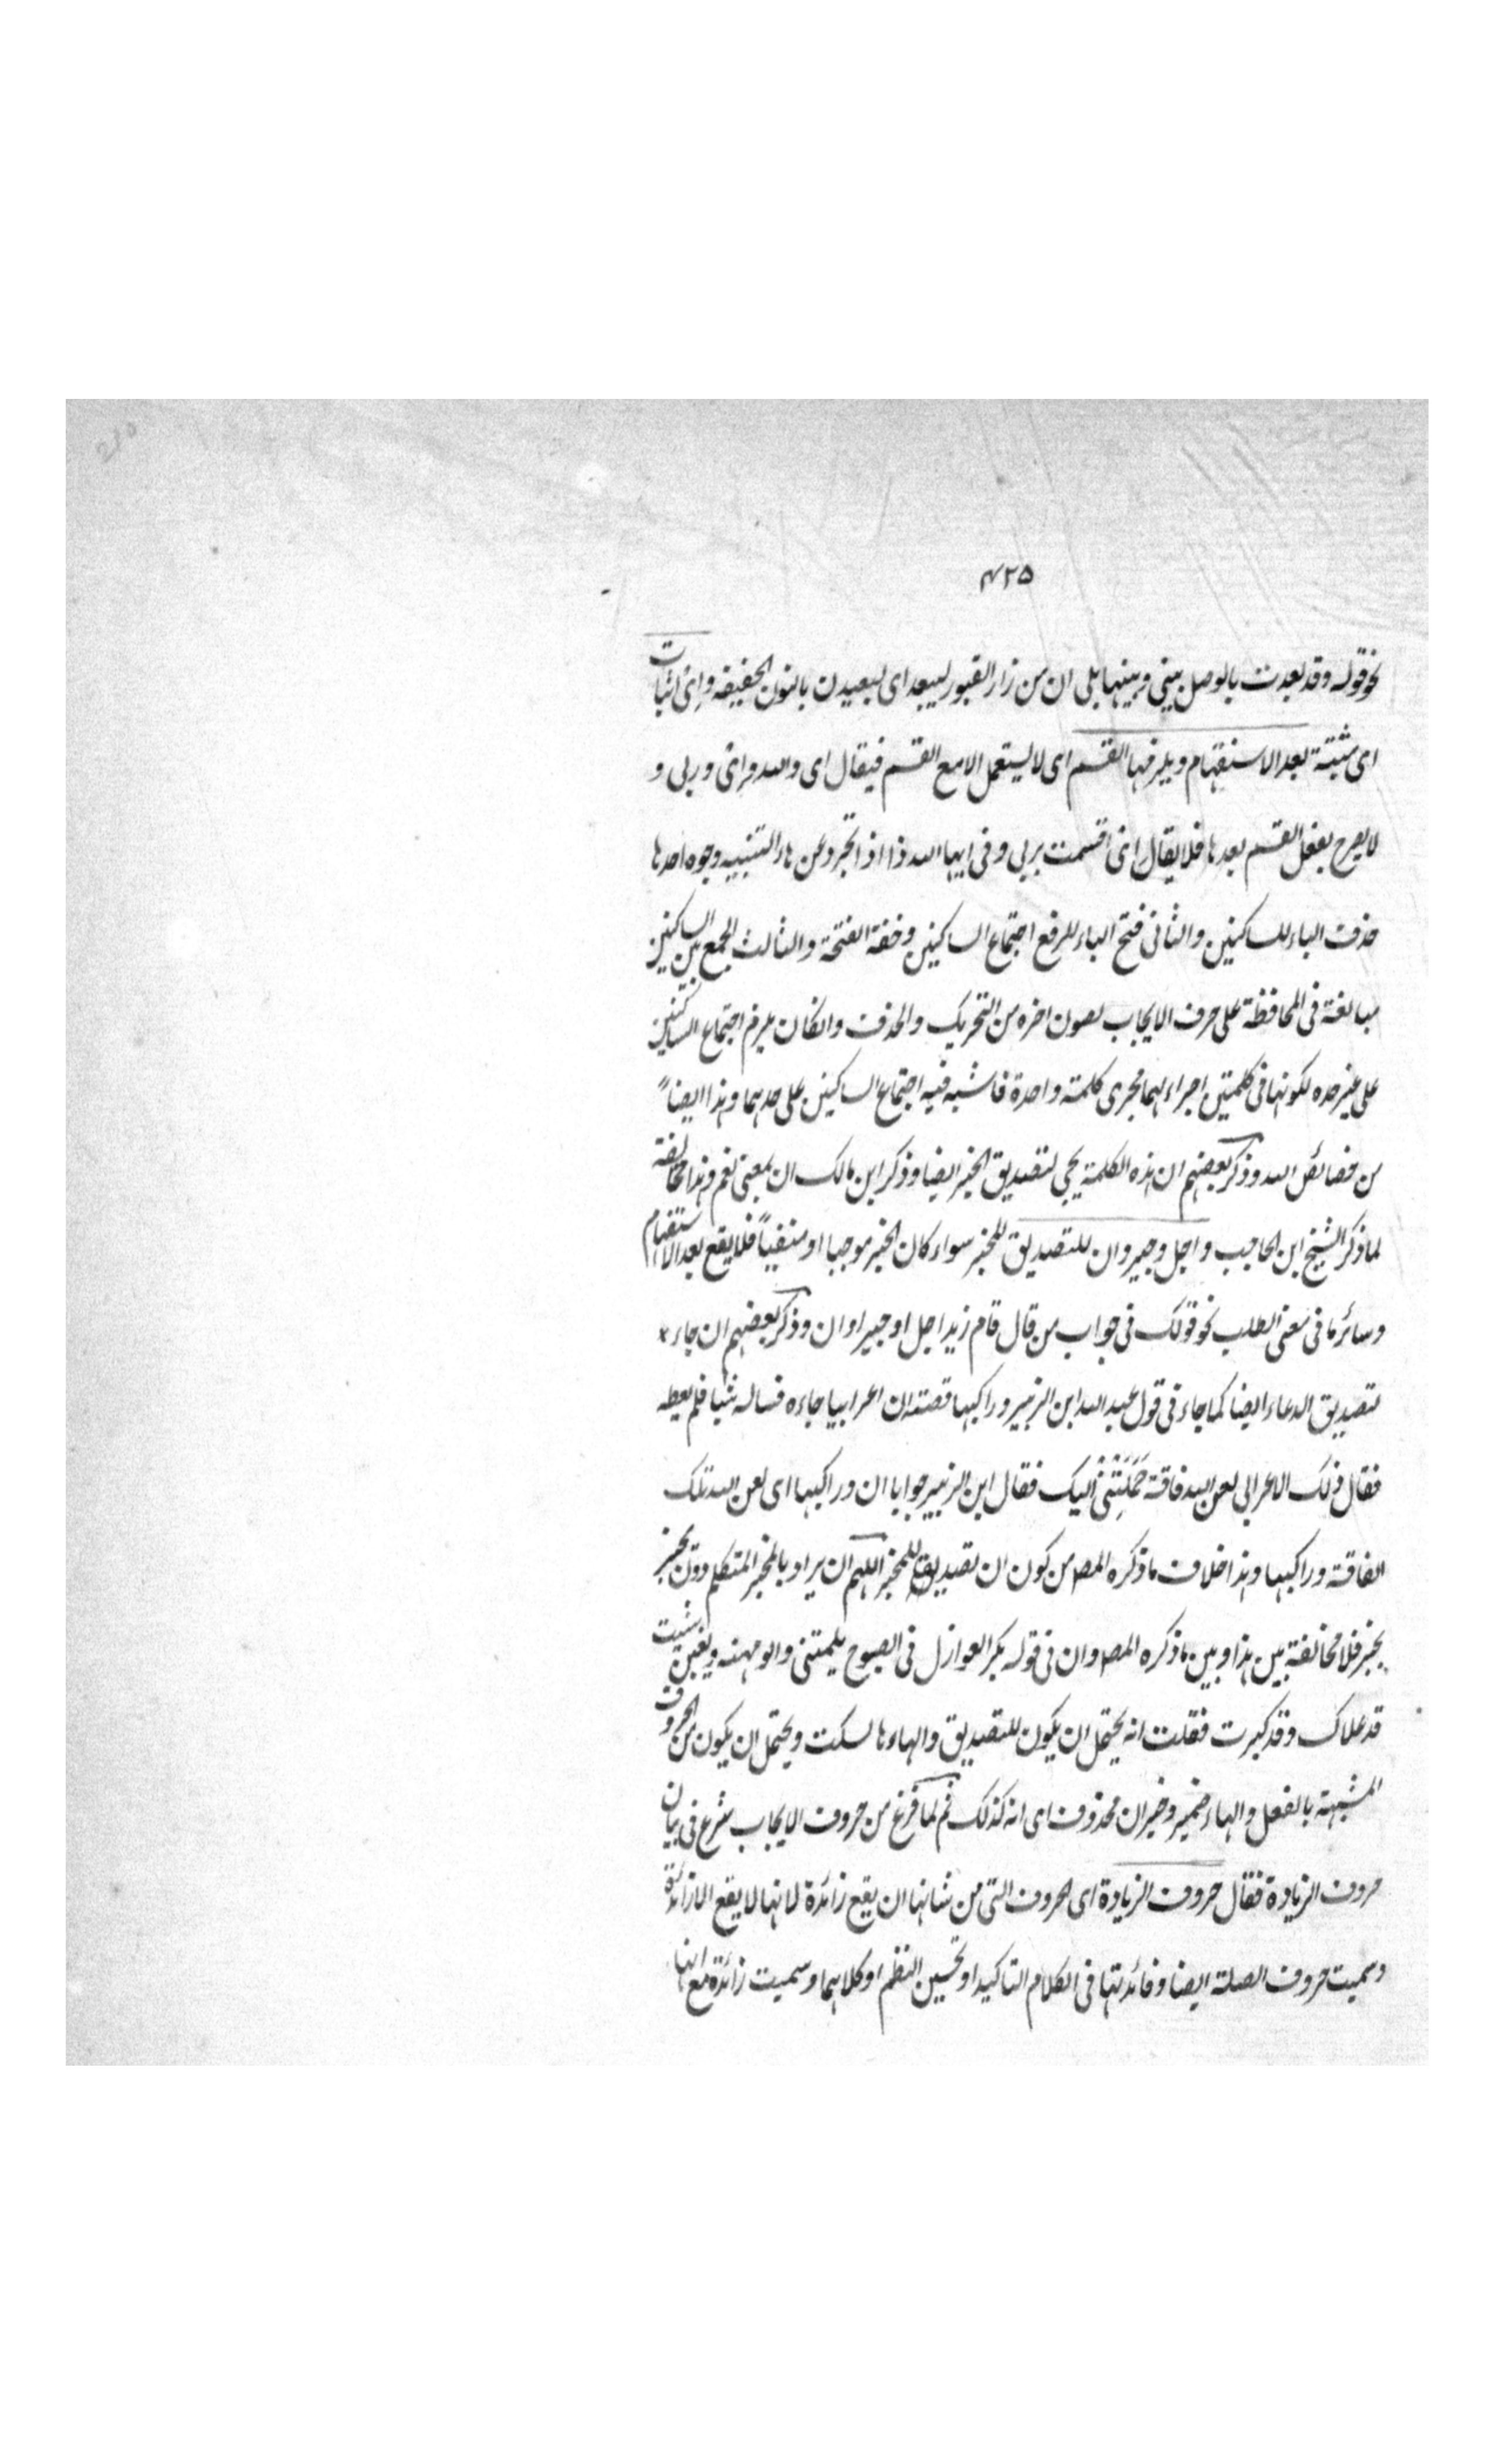 ٤٢٥
نحو قوله وقد بعدت بالوصل بيني وبينها بلى ان من زار القبور ليبعد اى ليبعدن بالنون الخفيفه وإى اثبات
اى مثبتة بعد الاستفهام ويلزمها القسم اى لا يستعمل الا مع القسم فيقال اى والله واى وربى و
لا يصرح بفعل القسم بعدها فلا يقال اى اقسمت بربى وفى ايها الله ذا اذ الجرد عن هاء التنبيه وجوه احدها
حذف الياء للساكنين والثانى فتح الياء للرفع اجتماع الساكنين وخفة الفتحة والثالث الجمع بين الساكنين
مبالغة فى المحافظة على حرف الايجاب لصون اخره من التحريك والحذف وانكان يلزم اجتماع الساكنين
على غير حده لكونها فى كلمتين اجراء لهما مجرى كلمة واحدة فاشبه فيه اجتماع الساكنين على حدهما وهذا ايضاً
من خصائص الله وذكر بعضهم ان هذه الكلمة يجى لتصديق الخبر ايضا وذكر ابن مالك ان بمعنى نعم وهذا مخالفة
لما ذكر الشيخ ابن الحاجب واجل وجير وان للتصديق للخبر سواء كان الخبر موجبا او منفياً فلا يقع بعد الاستفهام
وسائر ما فى معنى الطلب نحو قولك فى جواب من قال قام زيد اجل او جير او ان وذكر بعضهم ان جاء
لتصديق الدعاء ايضا كما جاء فى قول عبد الله ابن الزبير وراكبها قصته ان اعرابيا جاءه فساله شيا فلم يعطه
فقال ذلك الاعرابى لعن الله فاقة حَمَلَتْنِىْ اليك فقال ابن الزبير جوابا ان وراكبها اى لعن الله تلك
الفاقة وراكبها وهذا خلاف ما ذكره المص من كون ان تصديق للمخبر اللهم ان يراد بالمخبر المتكلم دون يخبر
بخبر فلا مخالفة بين هذا وبين ما ذكره المص وان فى قوله بكر العواذل فى الصبوح يلمتنى والومهنه ويقلن شيب
قد علاك وقد كبرت فقلت انه يحتمل ان يكون للتصديق والهاء ها لسكت ويحتمل ان يكون من الحروف
المشبهة بالفعل والهاء ضمير وخبر ان محذوف اى انه كذلك ثم لما فرغ من حروف الايجاب شرع فى بيان
حروف الزيادة فقال حروف الزيادة اى الحروف التى من شانها ان يقع زائدة لا انها لا يقع الا زائدة
وسميت حروف الصلة ايضا وفائدتها فى الكلام التاكيد او تحسين النظم او كلاهما وسميت زائدة مع انها